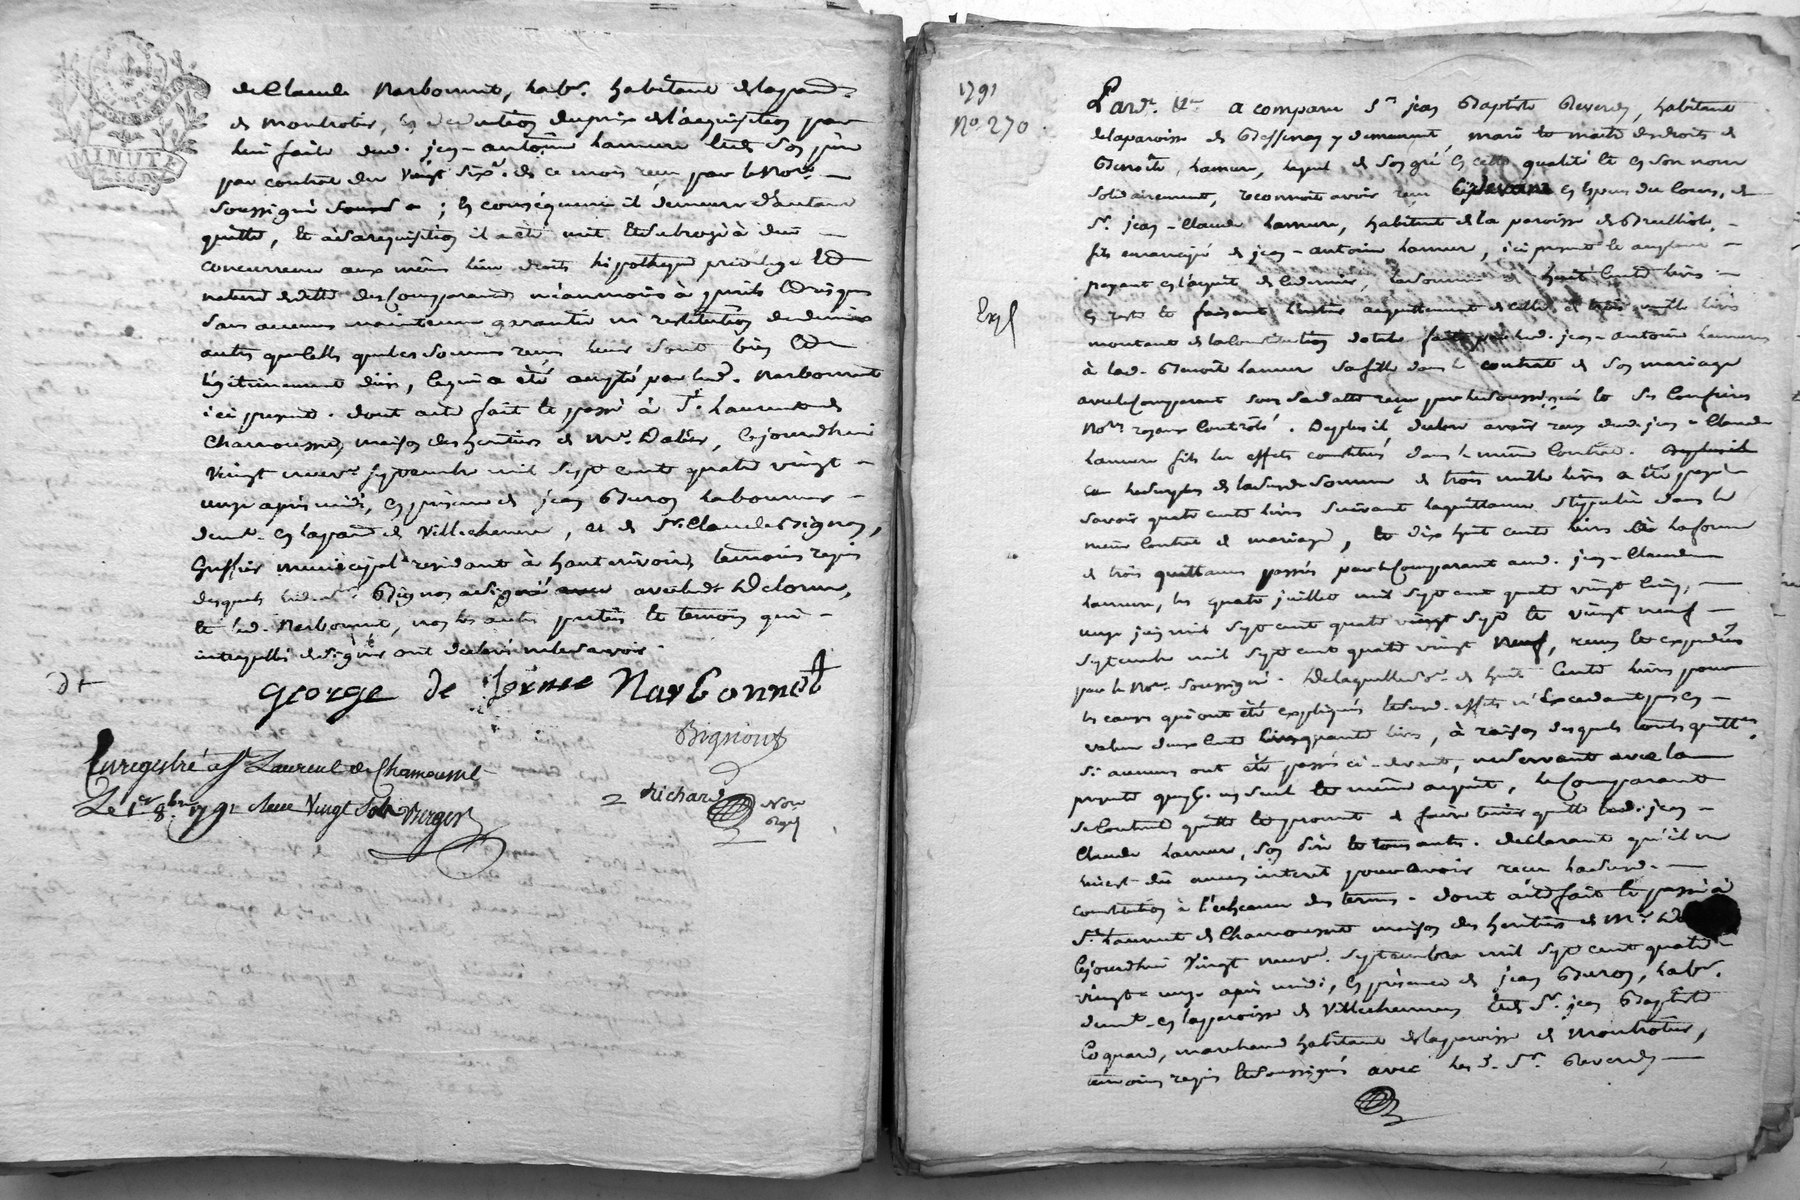 MINUTE
de Claude Narbonnet, lab.r habitant de la par.sse
de Montrotier, en déduction du prix de l'acquisition par
lui faite dud. jean-antoine Lamure et de son fils
par contrat du vingt six.e de ce mois reçu par le No.re
soussigné ; en conséquence il demeure d'autant
quitte, et à sa requisition il a été mit et subrogé à due
concurrence aux mêmes lieu droits hipotheque privilege et
nature de dette des Comparants néanmoins à périls et risques
sans aucune maintenue garantie ni restitution de deniers
autres que celle que les sommes reçues leur sont bien et
légitimement dües, ce qui a été accepté par led. Narbonnet
ici present. dont acte fait et passé à S.t Laurent de
Chamousset, maison des heritiers de M.r Dalier, cejourdhui
vingt neuf septembre mil sept cent quatre vingt
onze après midi, en présence de jean Buron laboureur
demt. en la par.sse de Villechenève, et de S.r Claude Bignon,
Greffier municipal residant à hauterivoire, temoins requis
desquels led. S.r Bignon a signé avec led. Delorme,
et led. Narbonnet, non les autres parties et temoin qui
interpellés de signer ont declaré ne le savoir.
George de Lorme Narbonnet
Bignon
Enregistré a S.t Laurent de Chamousset
Le 1.er 8.bre 1791 Recu Vingt Sols Verger
Richard Not.re
1791
N.o 270
Exp.
Pard.t N.re a comparu S.r jean Baptiste Reverdy, habitant
de la paroisse de Bessenay y demeurant, mari et maitre des droits de
Benoite Lamure, lequel de son gré en cette qualité et en son nom
solidairement, reconnoit avoir reçu en especes du cours, de
S.r jean-Claude Lamure, habitant de la paroisse de Brullioles,
fils emancipé de jean-antoine Lamure, ici present et acceptant
payant en l'acquit de ce dernier, la somme de huit Cents livres
en reste et faisant l'entier acquittement de celle de trois mille livres
montant de la Constitution dotale faite par led. jean-antoine Lamure
à lad. Benoite Lamure sa fille dans le contrat de son mariage
avec le Comparant sous sa datte reçu par le soussigné et ses Confrères
No.res royaux Controlé. De plus il declare avoir reçu dud. jean-Claude
Lamure fils les effets constitués dans le même Contrat.
Le surplus de la susd. somme de trois mille livres a été payé
savoir quatre cents livres suivant la quittance stipulée dans led.
même Contrat de mariage, et dix huit cents livres en la forme
de trois quittances passées par le Comparant aud. jean-Claude
Lamure, les quatre juillet mil sept cent quatre vingt cinq,
onze juin mil sept cent quatre vingt sept et vingt neuf
septembre mil sept cent quatre vingt neuf, reçues et expediées
par le No.re soussigné. De laquelle somme de huit Cents livres pour
les causes qui ont été expliquées et desd. effets n'excedant pas en
valeur deux Cents Cinquante livres, à raison desquels toutes quitt.es
si aucunes ont été passées ci-devant, ne servant avec la
presente que d'un seul et même acquit, le Comparant
se Contente quitte et promet de faire tenir quitte led. jean-
Claude Lamure, son père et tous autres. declarant qu'il ne
lui est dû aucun interet pour avoir reçu la susd.
constitution à l'echeance des termes. dont acte fait et passé à
S.t Laurent de Chamousset maison des heritiers de M.r
cejourdhui vingt neuf septembre mil sept cent quatre
vingt onze après midi, en présence de jean Buron, lab.r
demt. en la paroisse de Villechenève et de S.r jean Baptiste
Coquard, marchand habitant de la paroisse de Montrotier,
temoins requis et soussignés avec led. S.r Reverdy